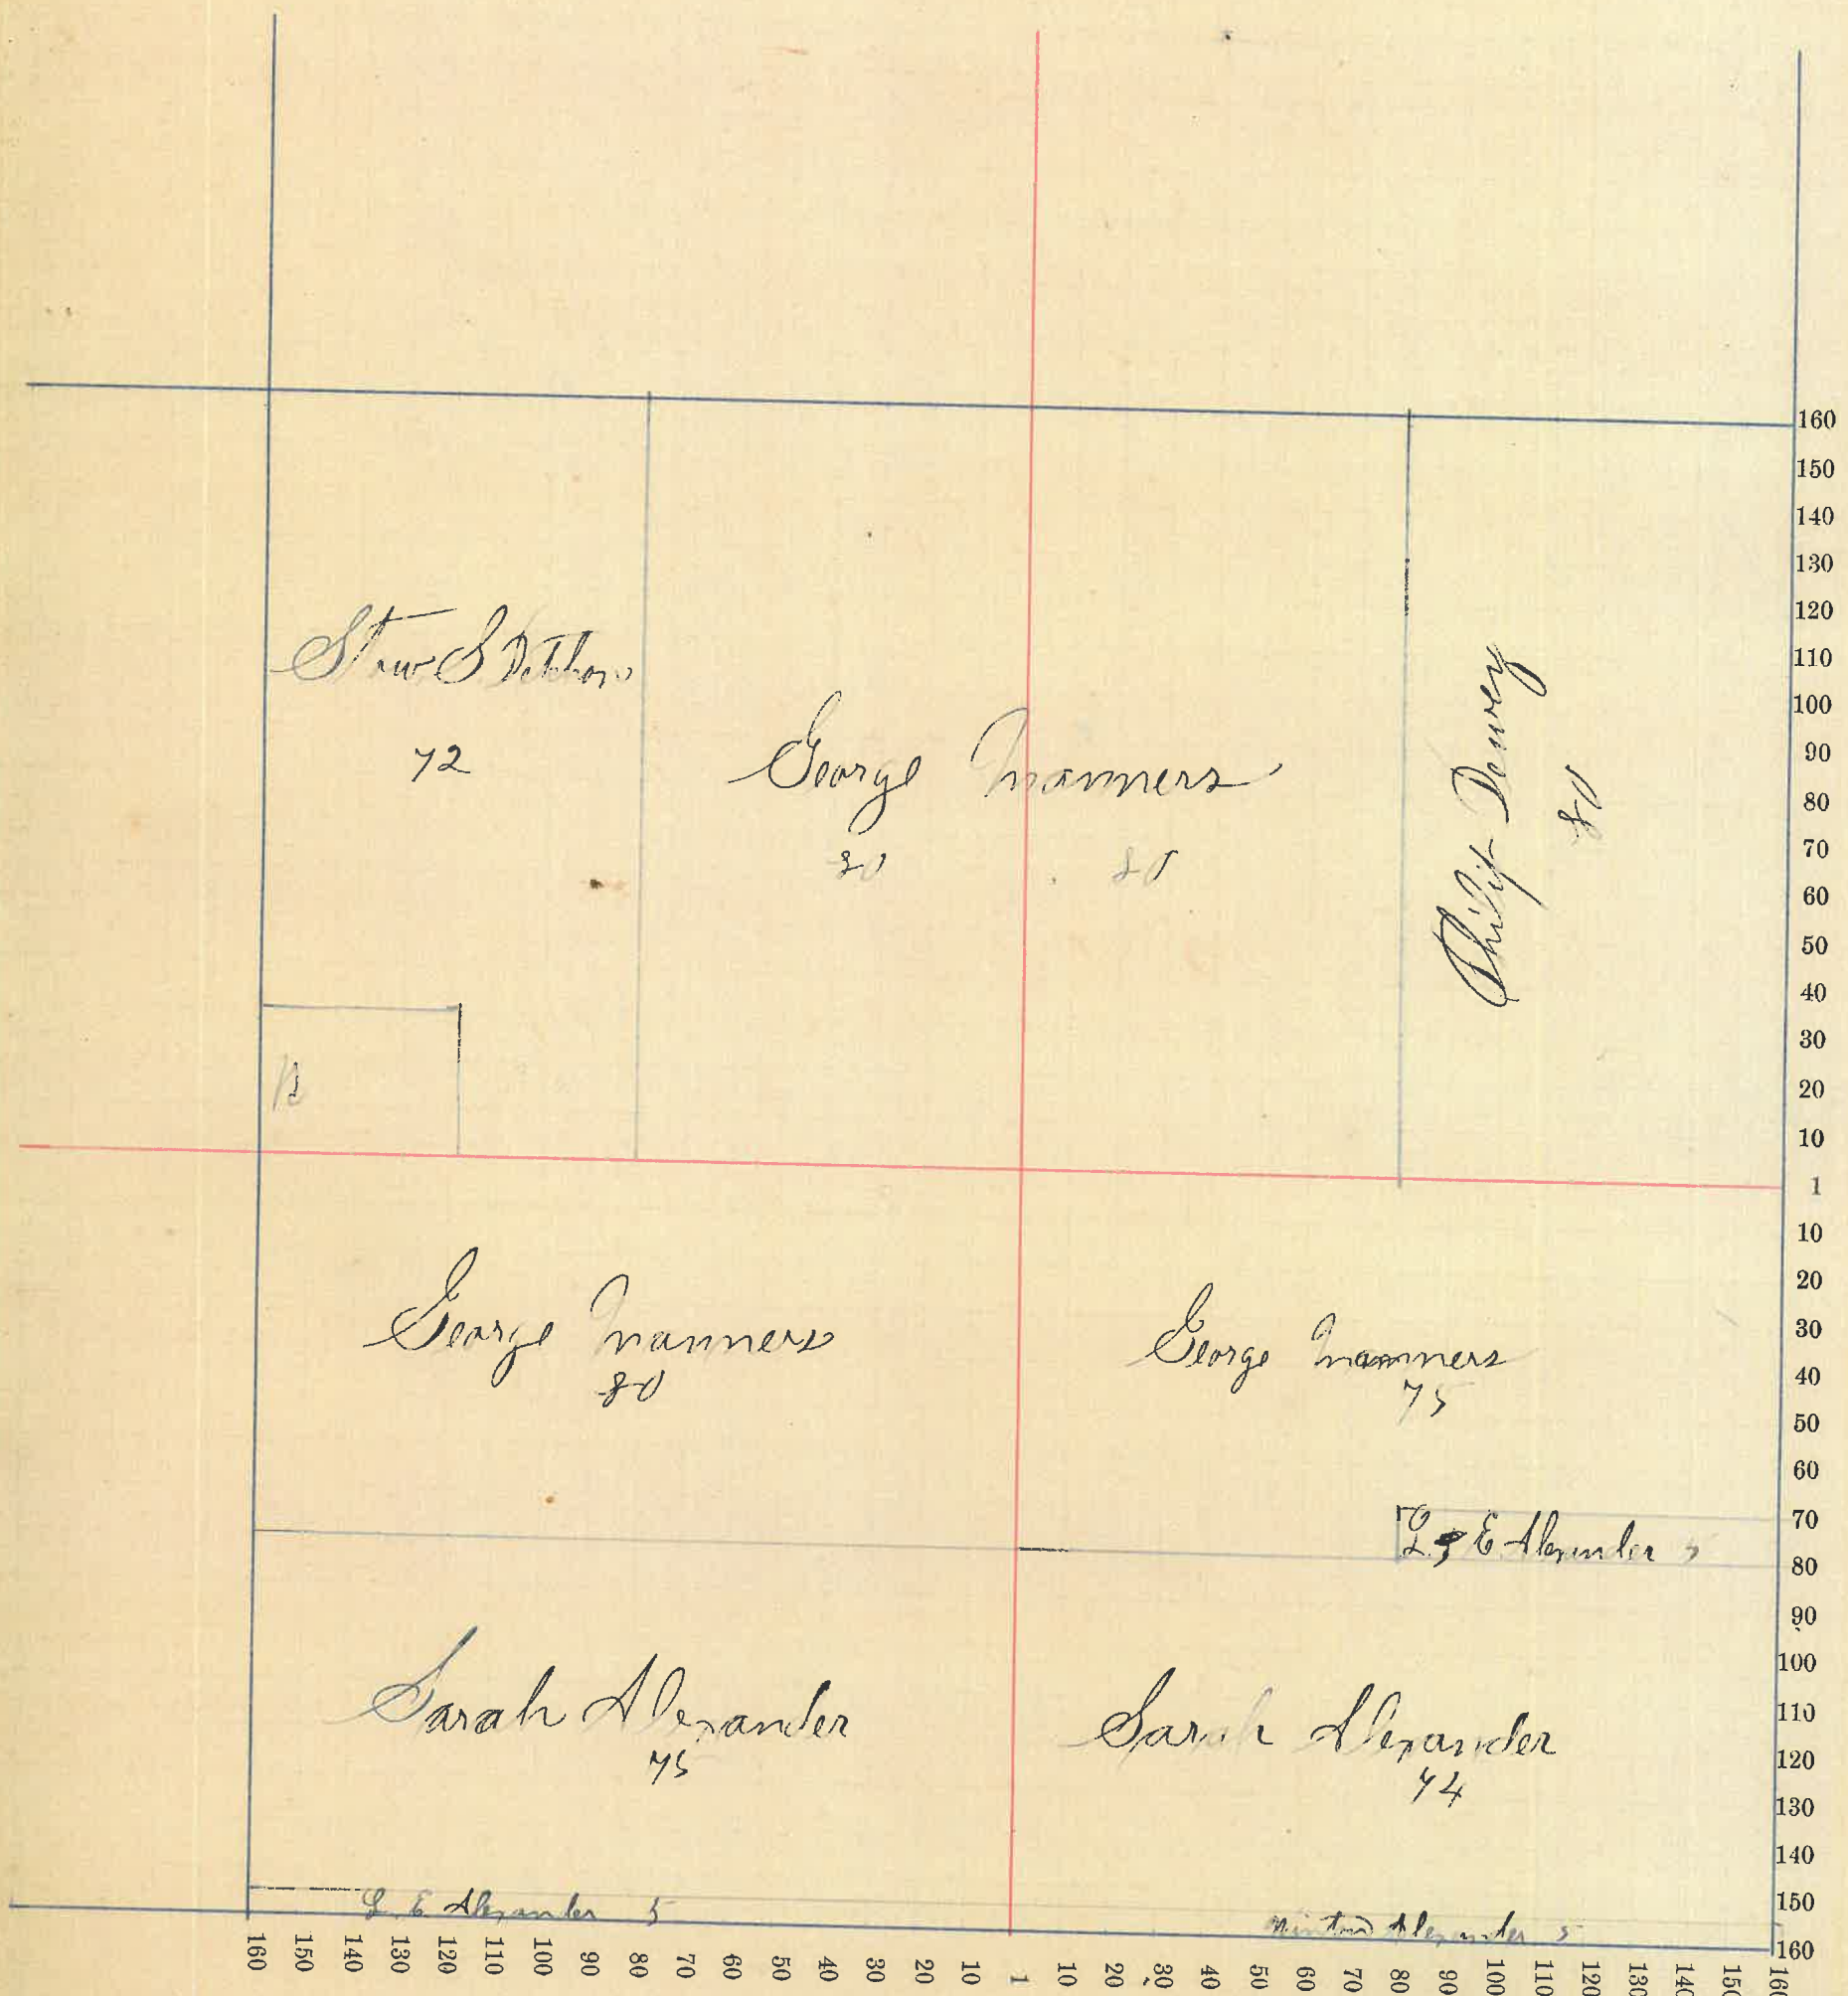 72
George Manners
80 80
Philip Dewey
80
George Manners
80
George Manners
75
L E Alexander 5
Sarah Alexander
75
Sarah Alexander
74
L E Alexander 5
Alexander 5
160
150
140
130
120
110
100
90
80
70
60
50
40
30
20
10
1
10
20
30
40
50
60
70
80
90
100
110
120
130
140
150
160
160 150 140 130 120 110 100 90 80 70 60 50 40 30 20 10 1 10 20 30 40 50 60 70 80 90 100 110 120 130 140 150 160